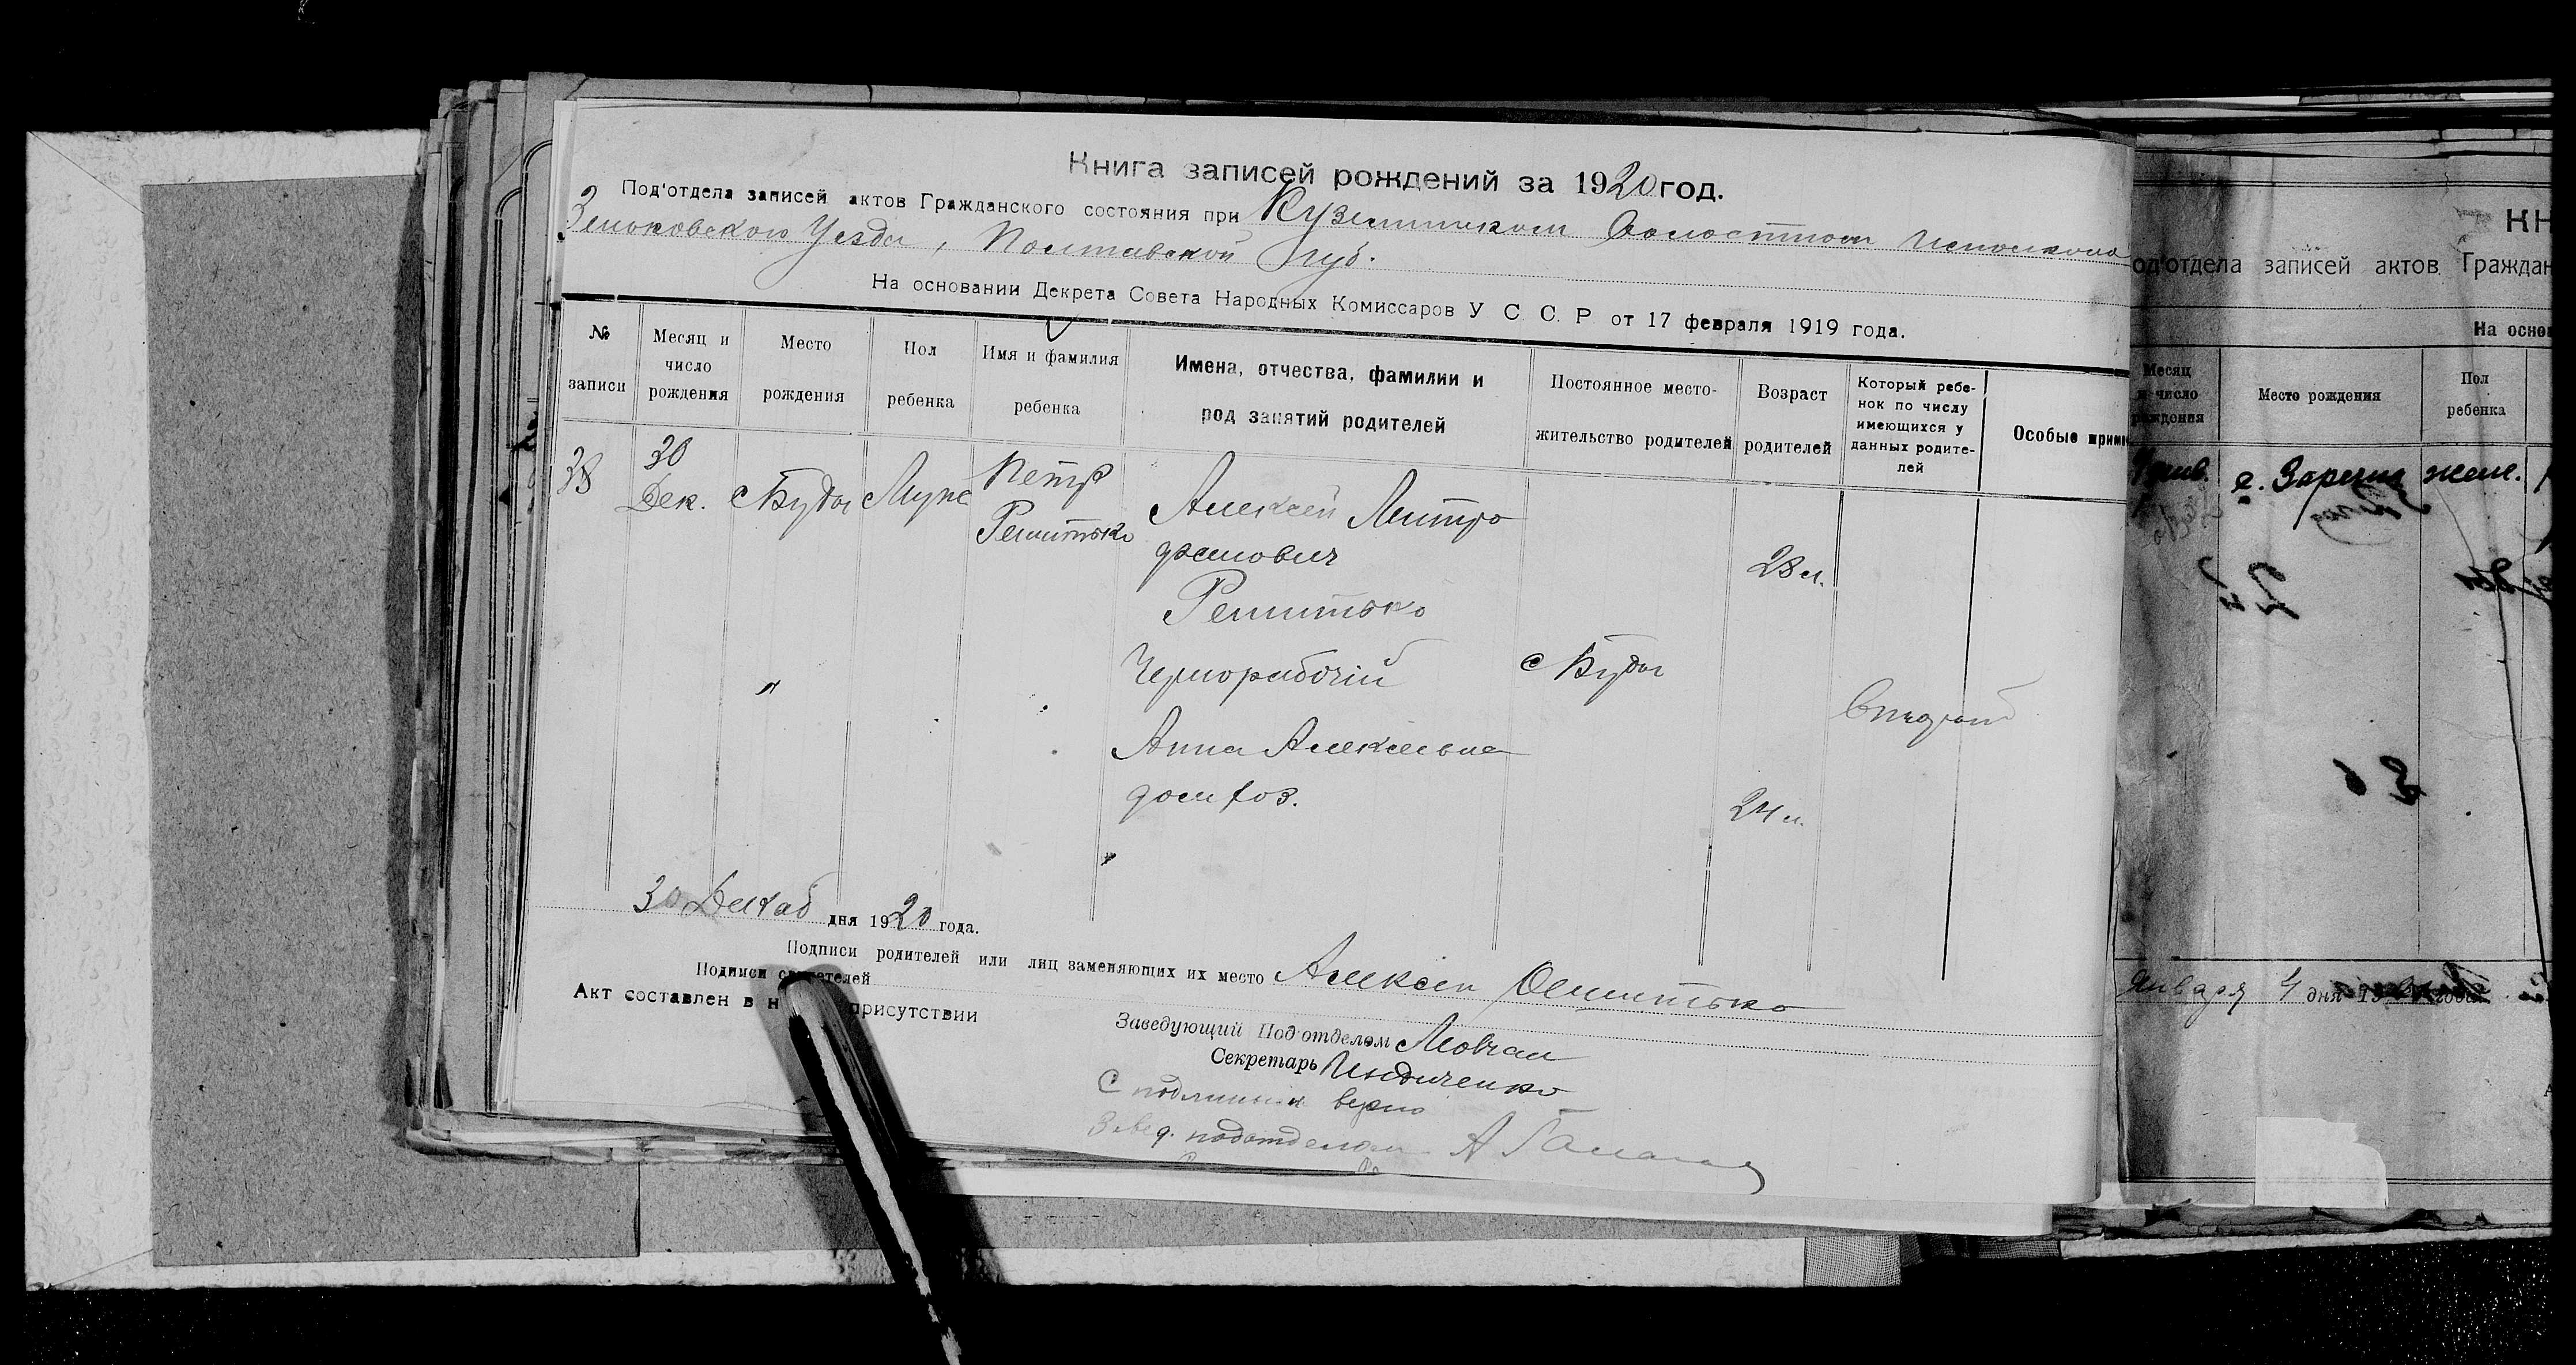 Книга записей рождений за 1920 год.
Под'отдела записей актов Гражданского состояния при Куземинском Волостном Исполкома
Зеньковского Уезда, Полтавской губ.
На основании Декрета Совета Народных Комиссаров У С. С. Р от 17 февраля 1919 года.
№ записи
Месяц и число рождения
Место рождения
Пол ребенка
Имя и фамилия ребенка
Имена, отчества, фамилии и род занятий родителей
Постоянное место-жительство родителей
Возраст родителей
Который ребе-нок по числу имеющихся у данных родите-лей
Особые приме
38
30 Дек.
с Буды
Муж
Петр
Решитько
Алексей Митро
фанович
Решитько
Чернорабочій
Анна Алексеевна
дом хоз.
с Буды
28 л.
24 л.
30 Декаб дня 1920 года.
Подписи родителей или лиц заменяющих их место Алексей
Подписи свидетелей
Акт составлен в н присутствии
Заведующий Под'отделом Мовчан
Секретарь Индиченко
С подлинным верно
Завед. подотделом А
КН
од'отдела записей актов Граждан
На осно
Месяц и число рождения
Место рождения
Пол ребенка
с.
жен.
Января 4 дня 19